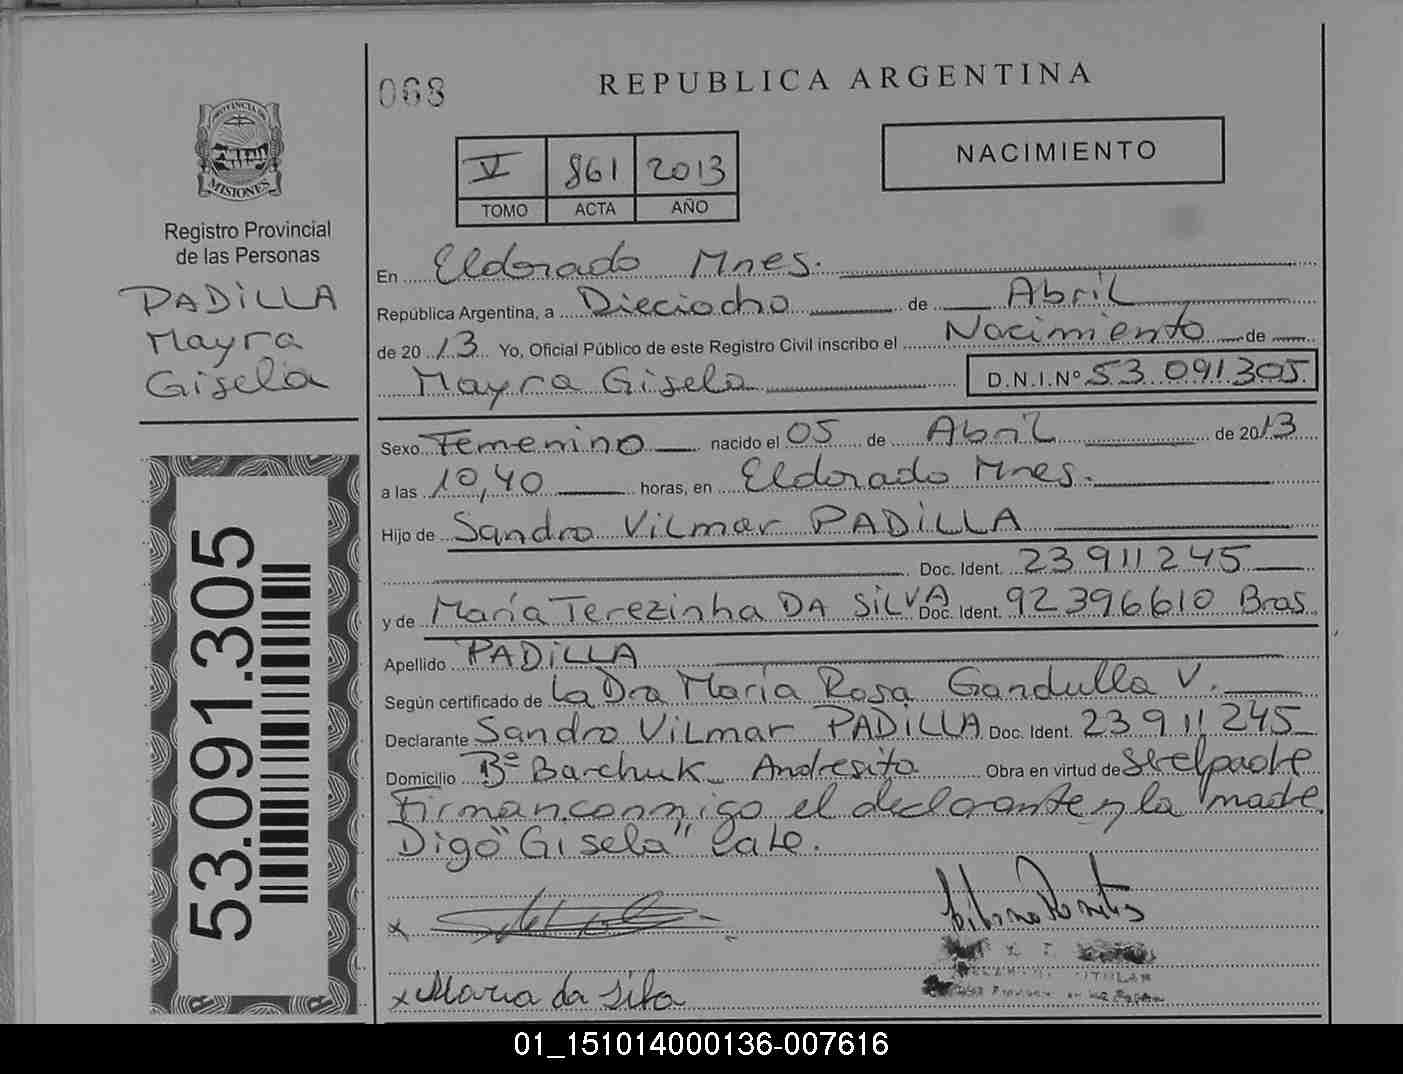 068
REPUBLICA ARGENTINA
PROVINCIA DE
MISIONES
V 861 2013
TOMO ACTA AÑO
NACIMIENTO
Registro Provincial
de las Personas
PADILLA
Mayra
Gisela
En Eldorado Mnes.
República Argentina, a Dieciocho de Abril
de 2013 Yo, Oficial Público de este Registro Civil inscribo el Nacimiento de
Mayra Gisela D.N.I.Nº 53 091305
Sexo Femenino nacido el 05 de Abril de 2013
a las 10,40 horas, en Eldorado Mnes.
Hijo de Sandro Vilmar PADILLA
Doc. Ident. 23911245
y de María Terezinha DA SILVA Doc. Ident. 92396610 Bras.
Apellido PADILLA
Según certificado de La Dra María Rosa Gandulla V.
Declarante Sandro Vilmar PADILLA Doc. Ident. 23911245
Domicilio Bº Barchuk Andresito Obra en virtud de ser el padre
Firman conmigo el declarante y la madre
Digo "Gisela" Vale.
x
x Maria da Silva
53.091.305
01_151014000136-007616